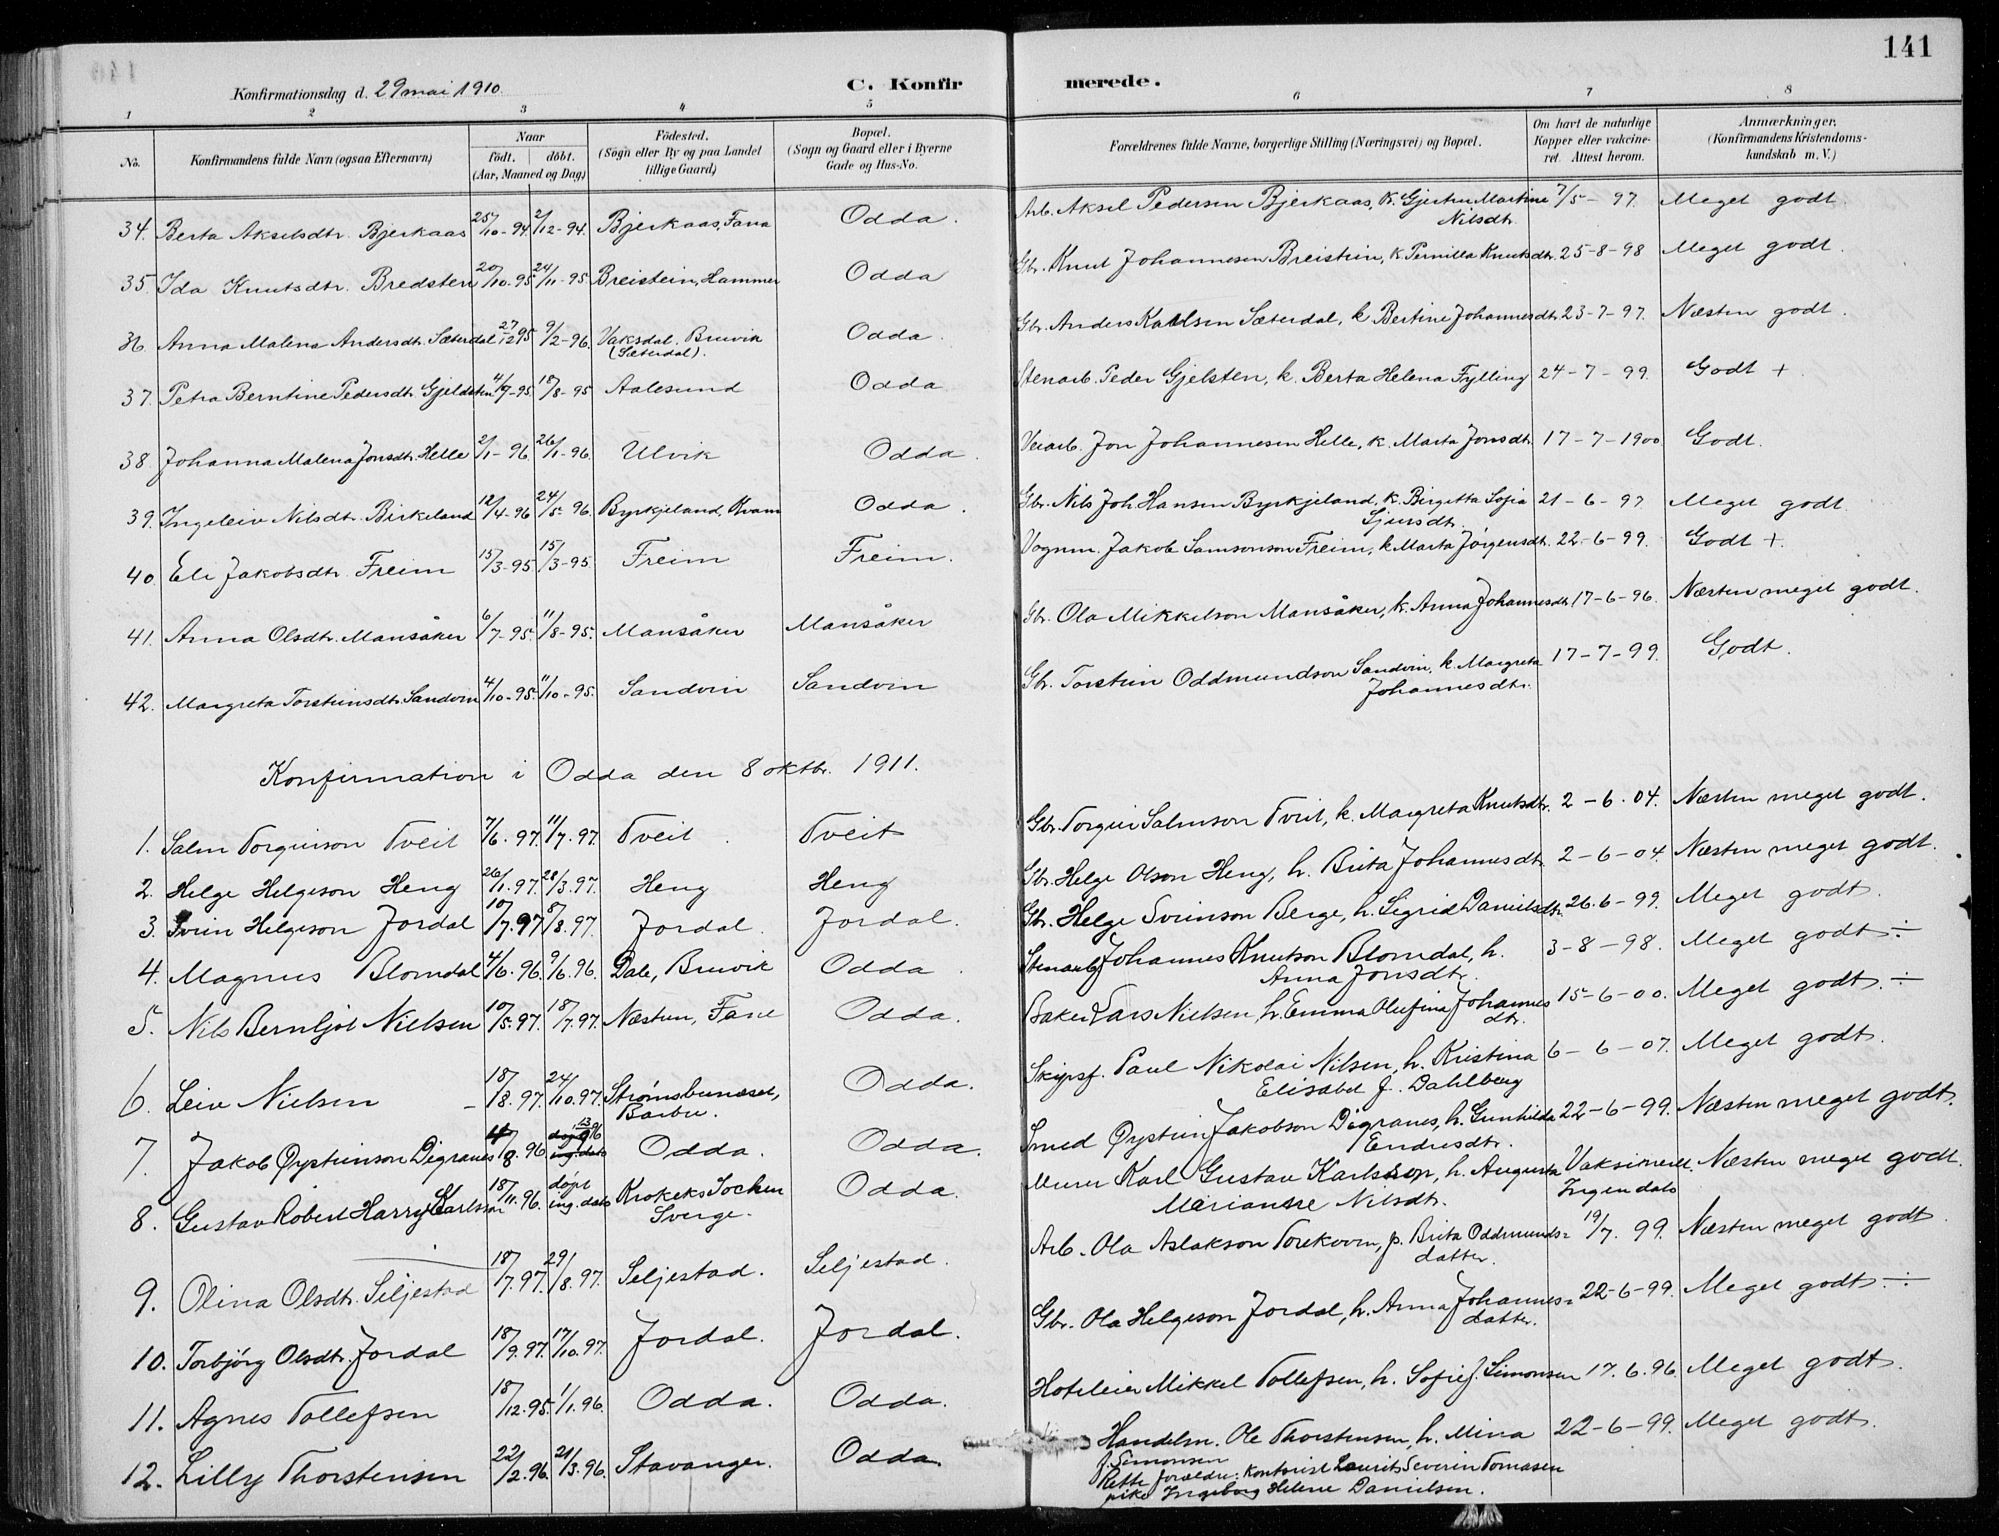 141
Konfirmationsdag d. 29 mai 1910
C. Konfirmerede.
1 2 3 4 5 6 7 8
No. Konfirmandens fulde Navn (ogsaa Efternavn) Naar födt. döbt. (Aar, Maaned og Dag) Födested. (Sogn eller By og paa Landet tillige Gaard) Bopæl. (Sogn og Gaard eller i Byerne Gade og Hus-No. Forældrenes fulde Navne, borgerlige Stilling (Næringsvei) og Bopæl. Om havt de naturlige Kopper eller vakcineret. Attest herom. Anmærkninger. (Konfirmandens Kristendomskundskab m. V.)
34. Berta Akselsdtr. Bjerkaas 25/10-94 2/12-94. Bjerkaas, Fana Odda. Arb. Aksel Pedersen Bjerkaas, k. Gjertru Martine Nilsdtr. 7/5-97. Meget godt.
35. Ida Knutsdtr. Bredsten 20/10-95 24/11-95. Breistein, Hammer Odda Gbr. Knut Johannesen Breistein, k. Pernilla Knutsdtr. 25-8-98 Meget godt.
36. Anna Malena Andersdtr. Sæterdal 27/12 95 9/2-96. Vaksdal, Bruvik (Sæterdal). Odda. Gbr. Anders Karlsen Sæterdal, k. Bertine Johannesdtr. 23-7-97. Næsten godt.
37. Petra Berntine Pedersdtr. Gjeldsten 4/7-95. 18/8-95 Aalesund Odda Stenarb. Peder Gjelsten, k. Berta Helena Fylling 24-7-99. Godt +
38. Johanna Malena Jonsdtr. Helle 2/1-96. 26/1-96. Ulvik Odda. Veiarb. Jon Johannesen Helle, k. Marta Jonsdtr. 17-7-1900 Godt.
39. Ingeleiv Nilsdtr. Birkeland 12/4-96 24/5-96. Byrkjeland, Kvam Odda. Gbr. Nils Joh. Hansen Byrkjeland, k. Birgetta Sofia Sjursdtr. 21-6-97 Meget godt.
40. Eli Jakobsdtr. Freim 15/3-95 15/3-95 Freim Freim. Vognm. Jakob Samsonson Freim, k. Marta Jørgensdt. 22-6-99. Godt +.
41. Anna Olsdtr. Mansåker 6/7-95. 11/8-95. Mansåker Mansåker Gbr. Ola Mikkelson Mansåker, k. Anna Johannesdtr. 17-6-96. Næsten meget godt.
42. Margreta Torsteinsdtr. Sandvin 4/10-95. 11/10-95. Sandvin Sandvin Gbr. Torstein Oddmundson Sandvin, k. Margreta Johannesdtr. 17-7-99. Godt.
Konfirmation i Odda den 8 oktbr. 1911.
1. Salm Torgeirson Tveit 7/6.97. 11/7.97. Tveit Tveit Gbr. Torgeir Salmson Tveit, k. Margreta Knutsdtr. 2-6.04. Næsten meget godt.
2. Helge Helgeson Heng 26/1.97. 28/3.97. Heng Heng Gbr. Helge Olson Heng, h. Brita Johannesdtr. 2-6-04. Næsten meget godt.
3. Svein Helgeson Jordal 10/7.97 8/8.97. Jordal. Jordal. Gbr. Helge Sveinson Berge, h. Sigrid Danielsdtr. 26.6-99. Meget godt.
4. Magnus Blomdal 4/6.96. 9/6.96. Dale, Bruvik Odda. Stenarb. Johannes Knutson Blomdal, h. Anna Jonsdtr. 3-8-98. Meget godt ÷
5. Nils Bernljot Nielsen 10/5.97. 18/7.97. Næsten, Fane Odda. Baker Lars Nielsen, h. Emma Olufina Johannesdtr. 15-6-00. Meget godt. ÷
6. Leiv Nielsen 18/8.97. 24/10.97. Strømsbunæset, Barbu. Odda. Skipsf. Paul Nikolai Nilsen, h. Kristina Elisabet f. Dahlberg 6-6-07. Meget godt.
7. Jakob Øysteinson Digranes 8.96 Odda. Odda. Smed Øystein Jakobson Digranes, h. Gunhilda Endresdtr. 22-6-99. Næsten meget godt.
8. Gustav Robert Harry Karlsson 18/11.96. døpt ing. dato Krokeks Socken Sverge. Odda. Murer Karl Gustav Karlsson, h. Augusta Marianne Nilsdtr. Vaksineret Ingen dato Næsten meget godt.
9. Olina Olsdtr. Seljestad 18/7.97. 29/8.97. Seljestad. Seljestad. Arb. Ola Aslakson Torekoven, p. Brita Oddmundsdatter. 19/7.99. Næsten meget godt
10. Torbjørg Olsdtr. Jordal 18/9.97. 17/10.97. Jordal. Jordal. Gbr. Ola Helgeson Jordal, h. Anna Johannesdatter. 22-6-99. Meget godt ÷
11. Agnes Tollefsen 18/12.95. 1/1.96. Odda. Odda. Hoteleier Mikkel Tollefsen, h. Sofie f. Simonsen 17.6.96. Meget godt.
12. Lilly Thorstensen 22/2.96. 21/3.96. Stavanger. Odda Handelsm. Ole Thorstensen, h. Mina f. Simonsen 22-6-99. Meget godt.
Rette forældre: Kontorist Laurits Severin Tomasen
pike Ingeborg Helene Danielsen.